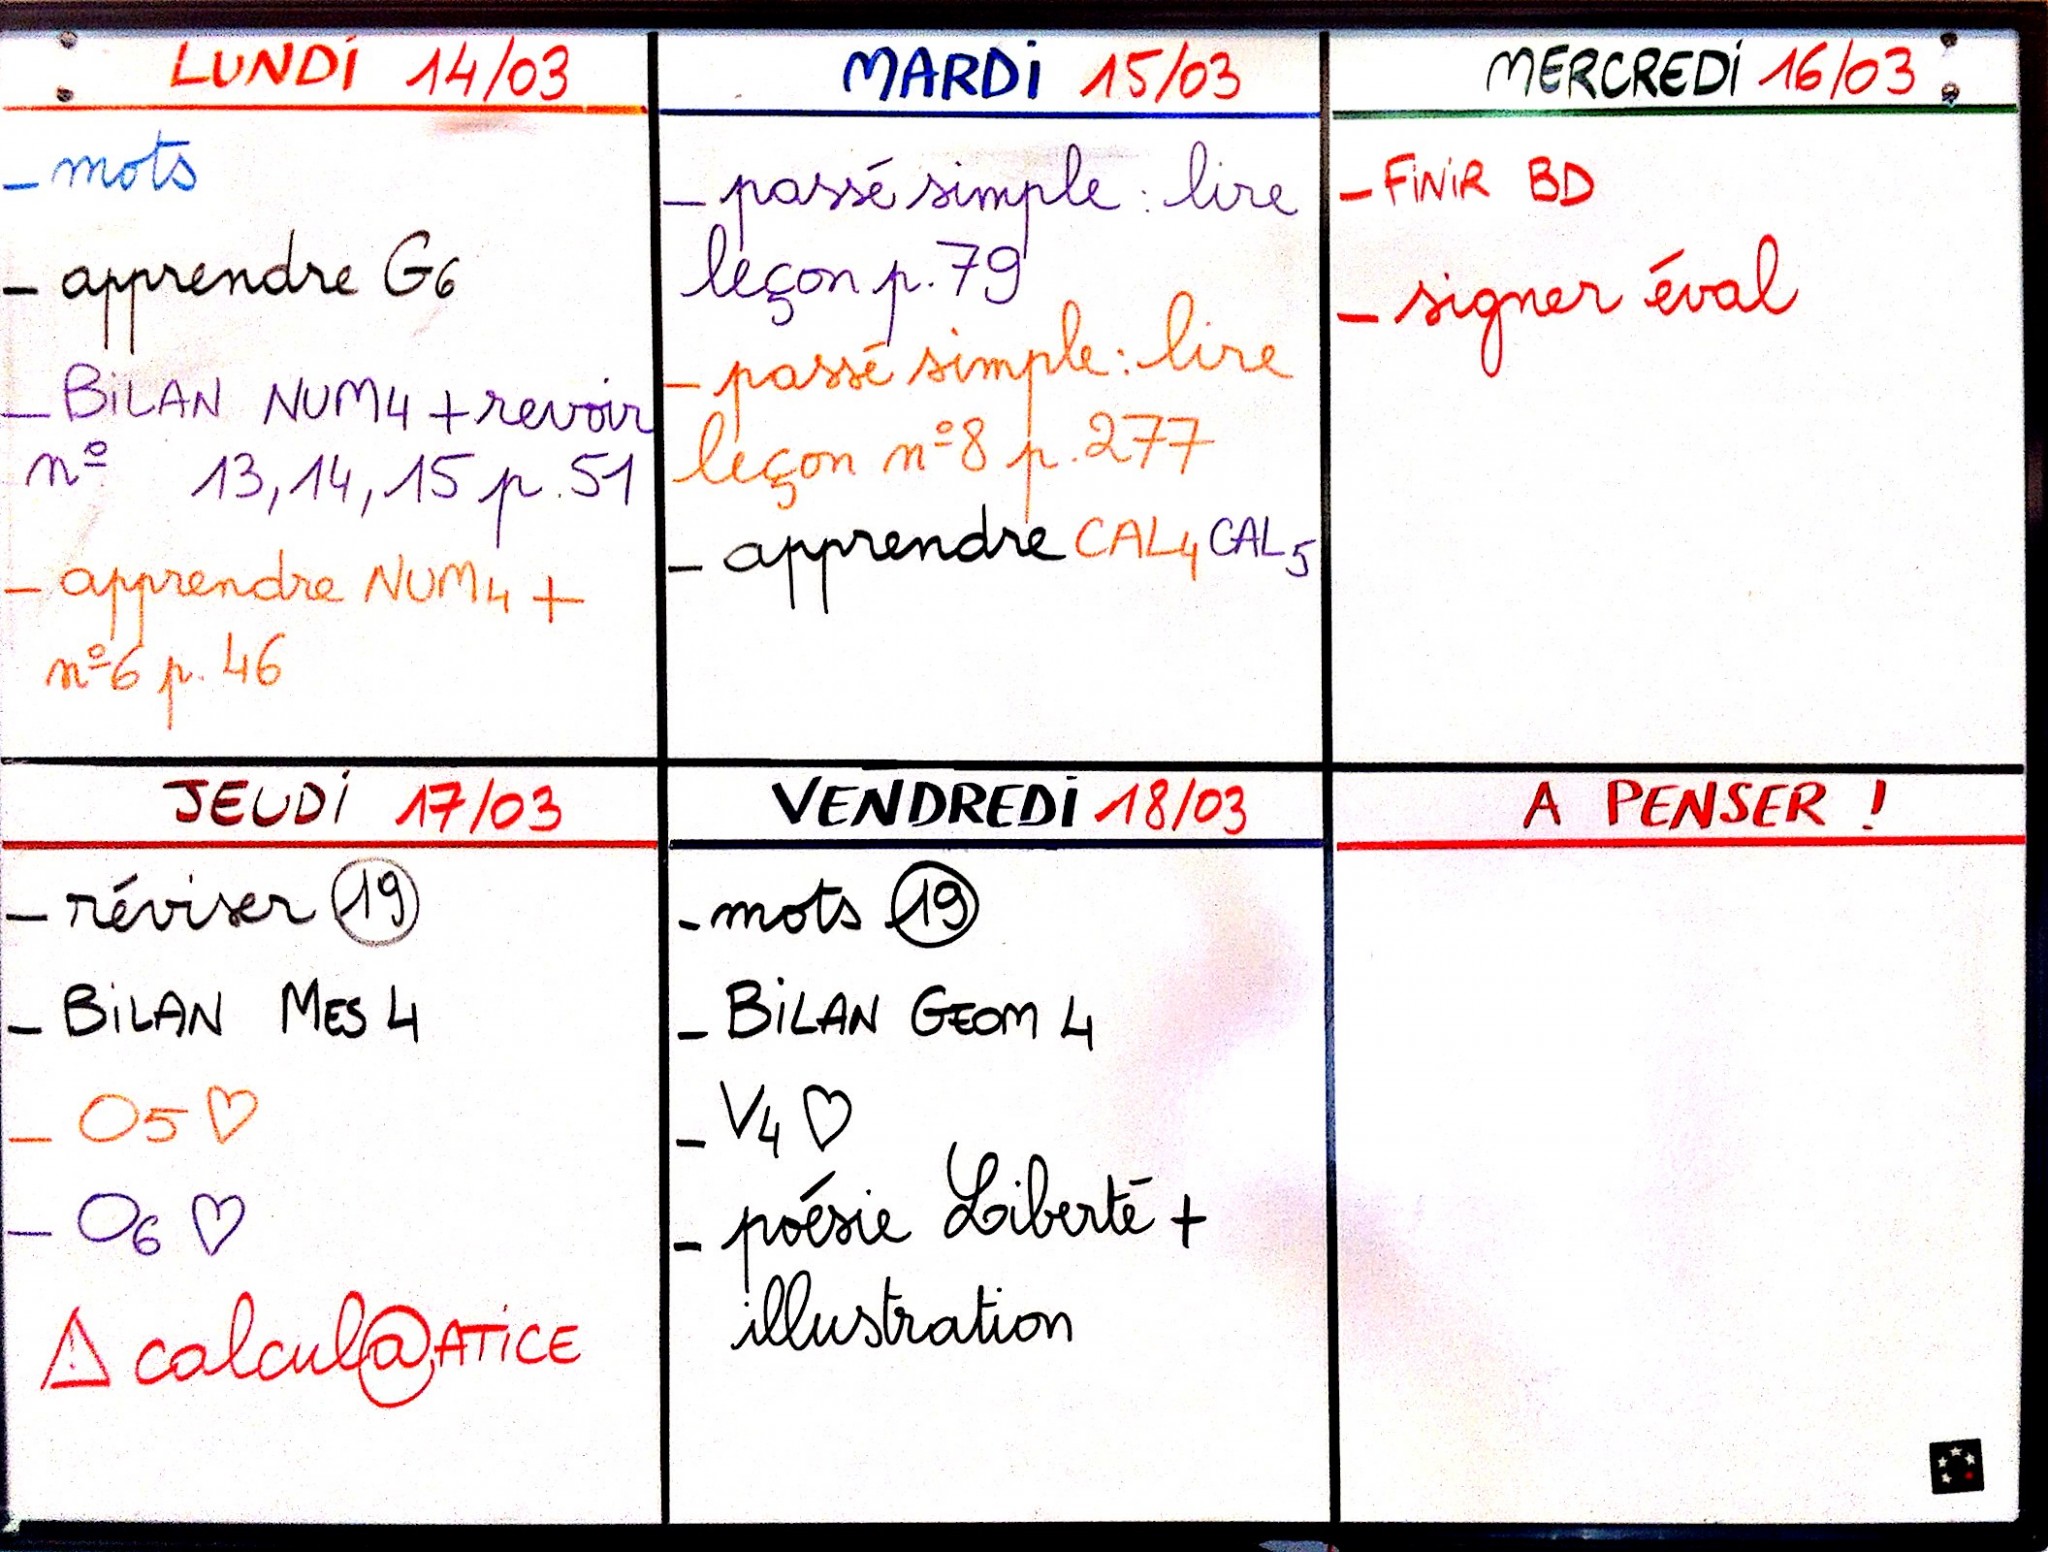 LUNDI 14/03
- mots
- apprendre G6
- BILAN NUM4 + revoir
nº 13, 14, 15 p. 51
- apprendre NUM4 +
nº6 p. 46
MARDI 15/03
- passé simple : lire
leçon p. 79
- passé simple : lire
leçon nº8 p. 277
- apprendre CAL4 CAL5
MERCREDI 16/03
- FINIR BD
- signer éval
JEUDI 17/03
- réviser 19
- BILAN MES 4
- O5 ♡
- O6 ♡
⚠ calcul@ATICE
VENDREDI 18/03
- mots 19
- BILAN GEOM 4
- V4 ♡
- poésie Liberté +
illustration
A PENSER !